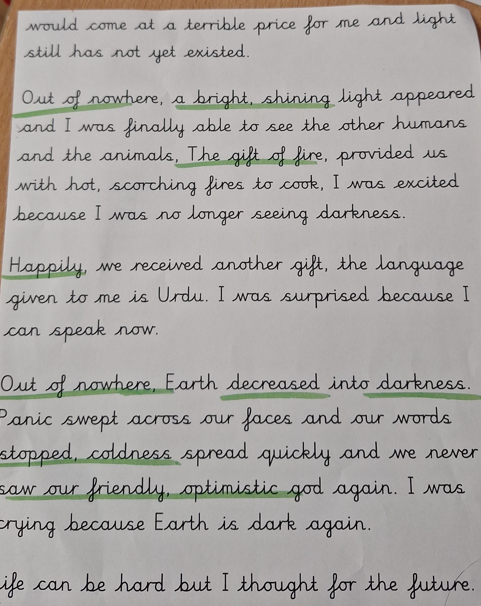 would come at a terrible price for me and light
still has not yet existed.
Out of nowhere, a bright, shining light appeared
and I was finally able to see the other humans
and the animals, The gift of fire, provided us
with hot, scorching fires to cook, I was excited
because I was no longer seeing darkness.
Happily, we received another gift, the language
given to me is Urdu. I was surprised because I
can speak now.
Out of nowhere, Earth decreased into darkness.
Panic swept across our faces and our words
stopped, coldness spread quickly and we never
saw our friendly, optimistic god again. I was
crying because Earth is dark again.
ife can be hard but I thought for the future.